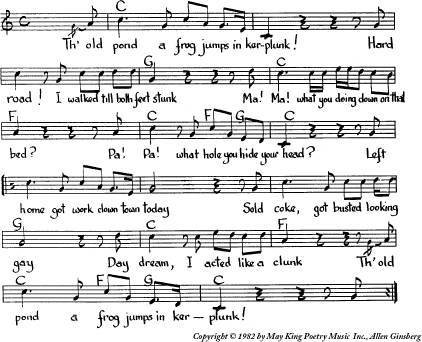 C
Th' old pond a frog jumps in ker-plunk! Hard
G C
road! I walked till both feet stunk Ma! Ma! what you doing down on that
F C F G C
bed? Pa! Pa! what hole you hide your head? Left
home got work down town today Sold coke, got busted looking
G C F
gay Day dream, I acted like a clunk Th' old
C F G C
pond a frog jumps in ker — plunk!
Copyright © 1982 by May King Poetry Music Inc., Allen Ginsberg